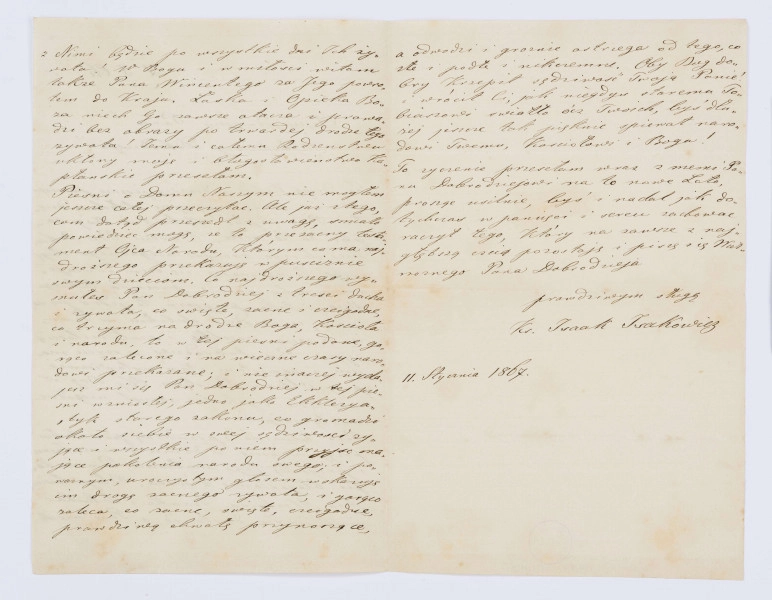 z Nimi będzie po wszystkie dni Ich ży-
wota! W Bogu i w miłości witam
także Pana Wincentego za Jego powro-
tem do Kraju. Łaska i Opieka Bo-
ża niech Go zawsze otacza i prowa-
dzi bez obrazy po twardej drodze tego
żywota! Jemu i całemu Rodzeństwu
ukłony moje i błogosławieństwo ka-
płańskie przesełam.
Pieśni o Domu Naszym nie mogłem
jeszcze całej przeczytać. Ale już z tego,
com dotąd przeszedł z uwagą, śmiało
powiedzieć mogę, że to przezacny testa-
ment Ojca Narodu, którym co ma naj-
droższego przekazują w puściźnie
swym dzieciom. Co najdroższego wy-
snułeś Pan Dobrodziej z treści ducha
i żywota, co święte, zacne i czcigodne,
co trzyma na drodze Boga, Kościoła
i narodu, to w tej pieśni podane, go-
rąco zalecone i na wieczne czasy naro-
dowi przekazane; i nie inaczej wyda-
jesz mi się Pan Dobrodziej w tej pie-
śni wzniosłej, jedno jako Ekklezya-
styk starego zakonu, co gromadzi
około siebie w swej sędziwości ży-
jące i wszystkie po niem przyjść ma-
jące pokolenia narodu swego, i po-
ważnym, uroczystym głosem wskazuje
im drogę zacnego żywota, i gorąco
zaleca, co zacne, święte, czcigodne,
prawdziwą chwałę przynoszące,
a odwodzi i groźnie ostrzega od tego, co
złe i podłe i nikczemne. Oby Bóg do-
bry krzepił sędziwość Twoją Panie!
i wrócił Ci, jak niegdyś staremu To-
biaszowi światło ócz Twoich, byś dłu-
żej jeszcze tak pięknie śpiewał naro-
dowi Twemu, Kościołowi i Bogu!
To życzenie przesełam wraz z memi Pa-
nu Dobrodziejowi na to nowe Lato,
proszę usilnie, byś i nadal jak do-
tychczas w pamięci i sercu zachować
raczył tego, który na zawsze z naj-
głębszą czcią pozostaję i piszę się Wiel-
możnego Pana Dobrodzieja
prawdziwym sługą
Ks. Izaak Isakowicz
11. Stycznia 1867.